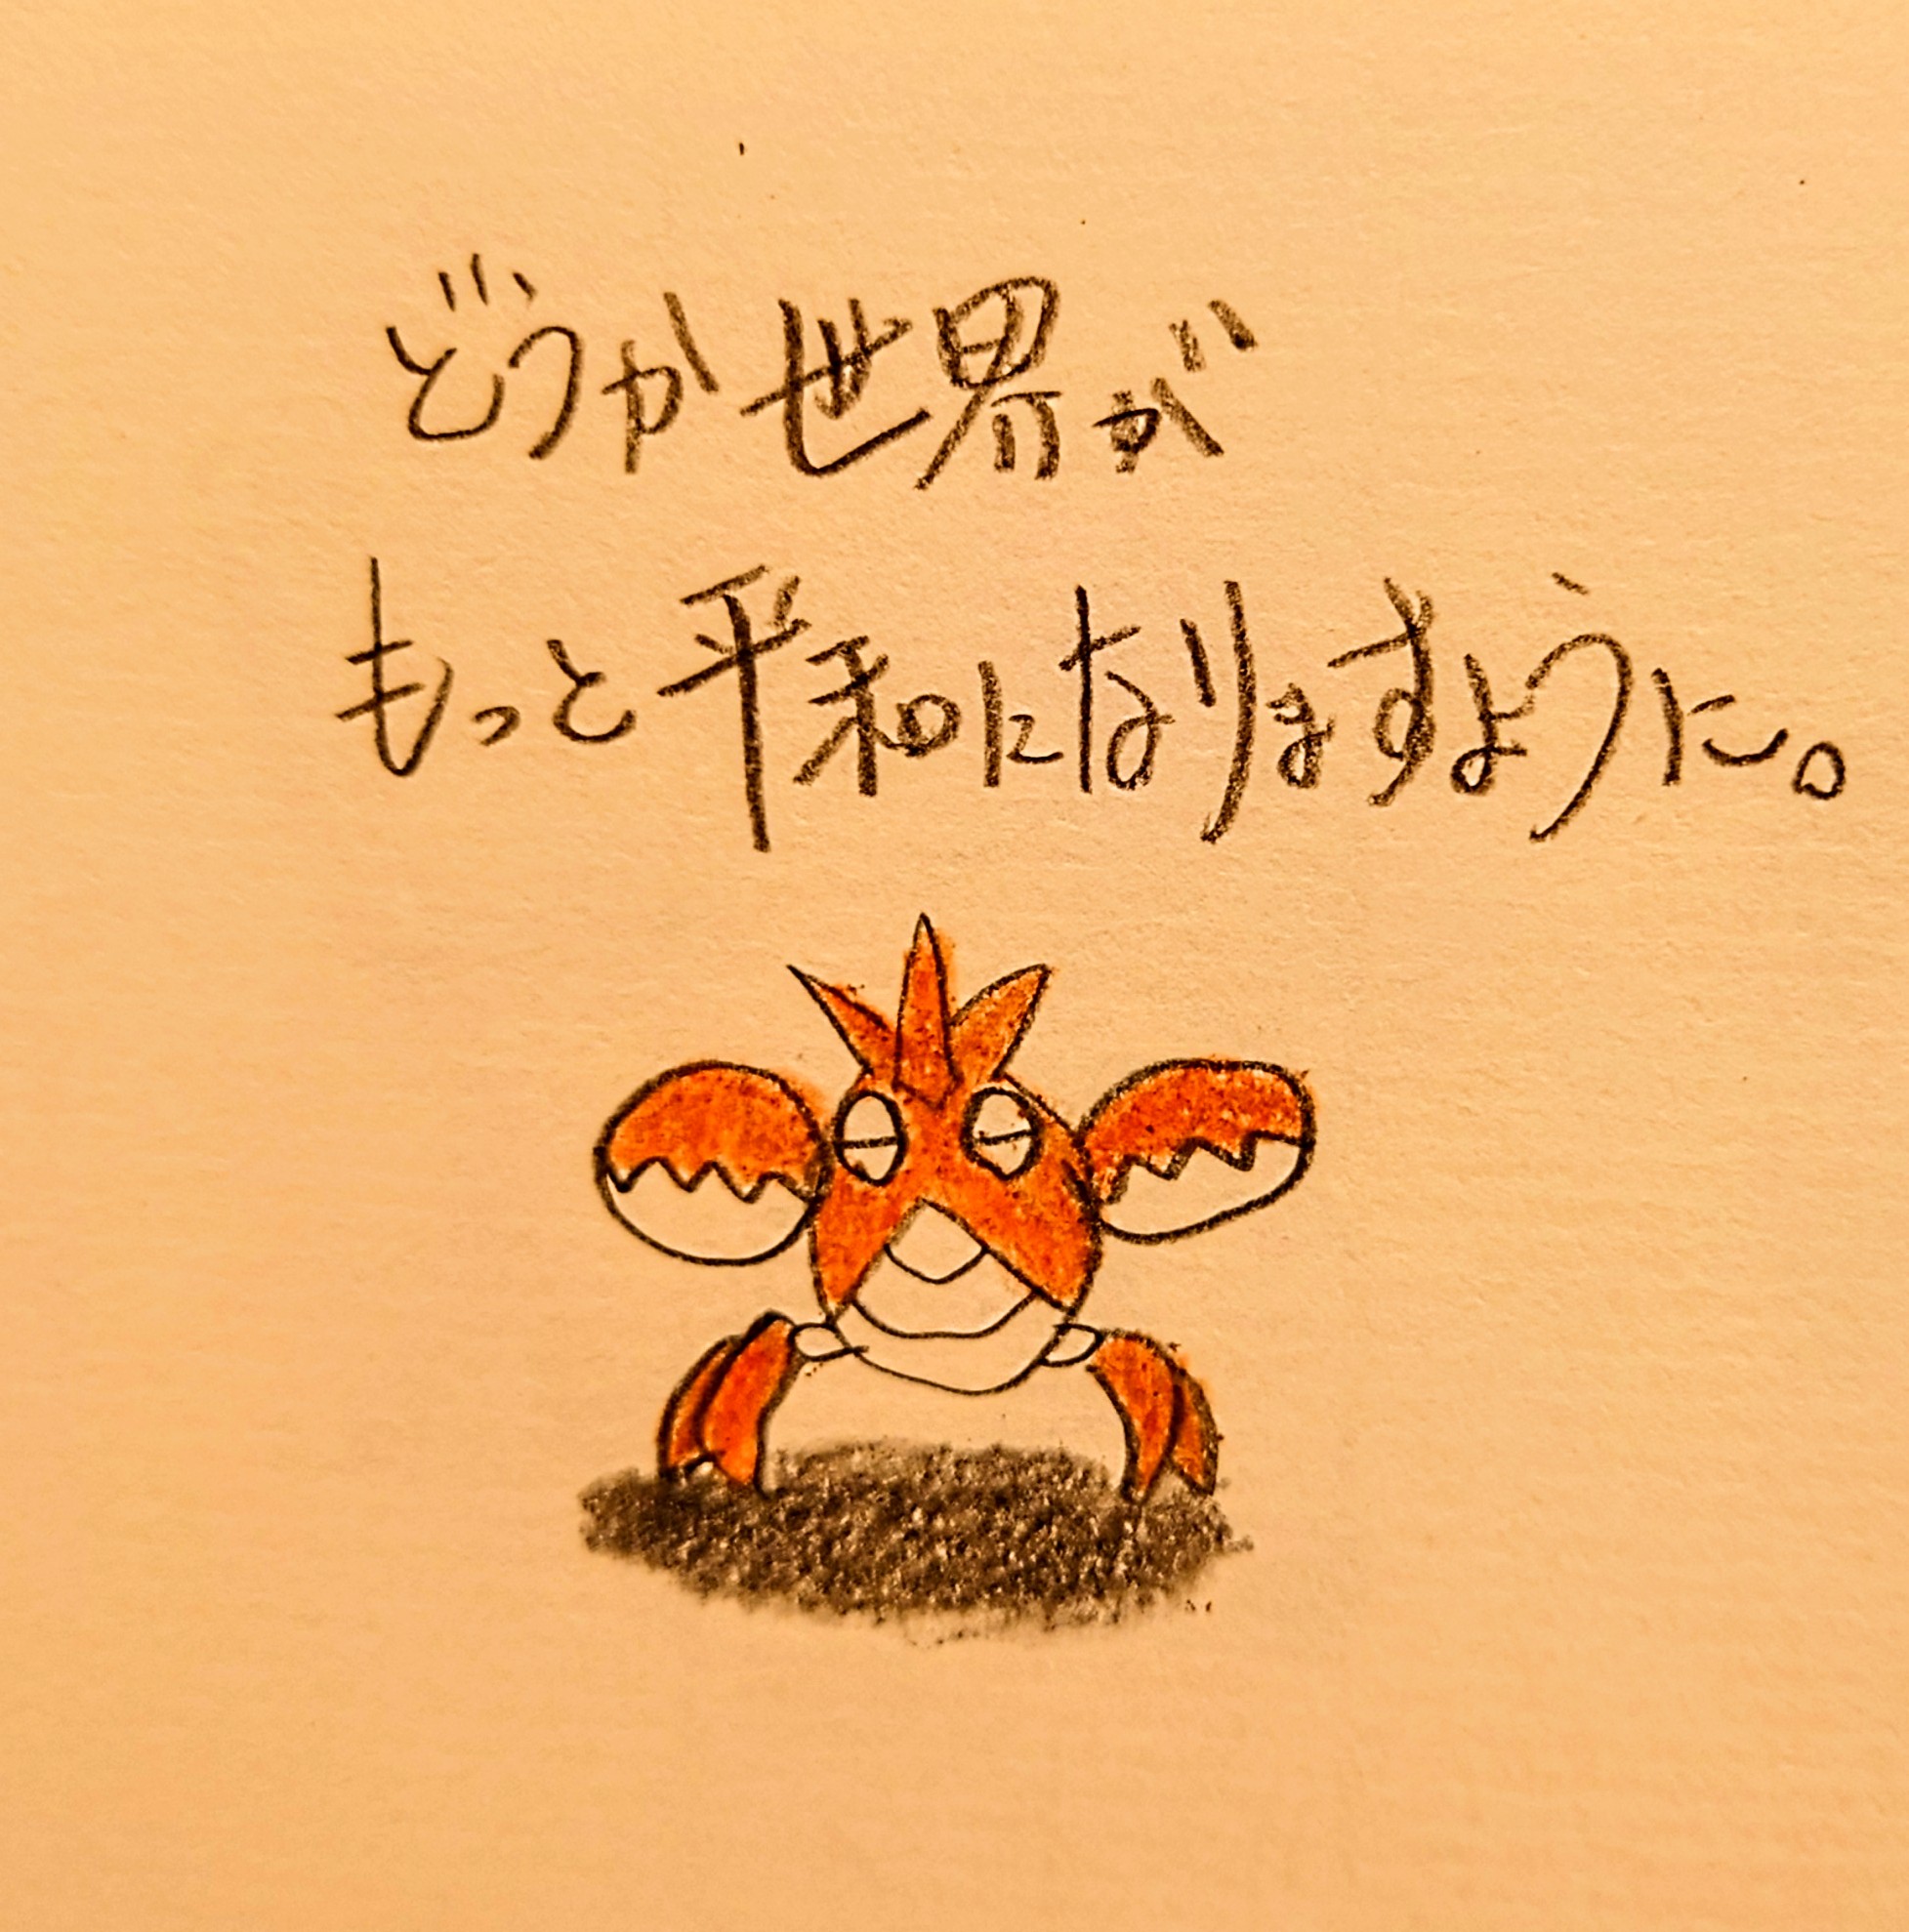 どうか世界が
もっと平和になりますように。